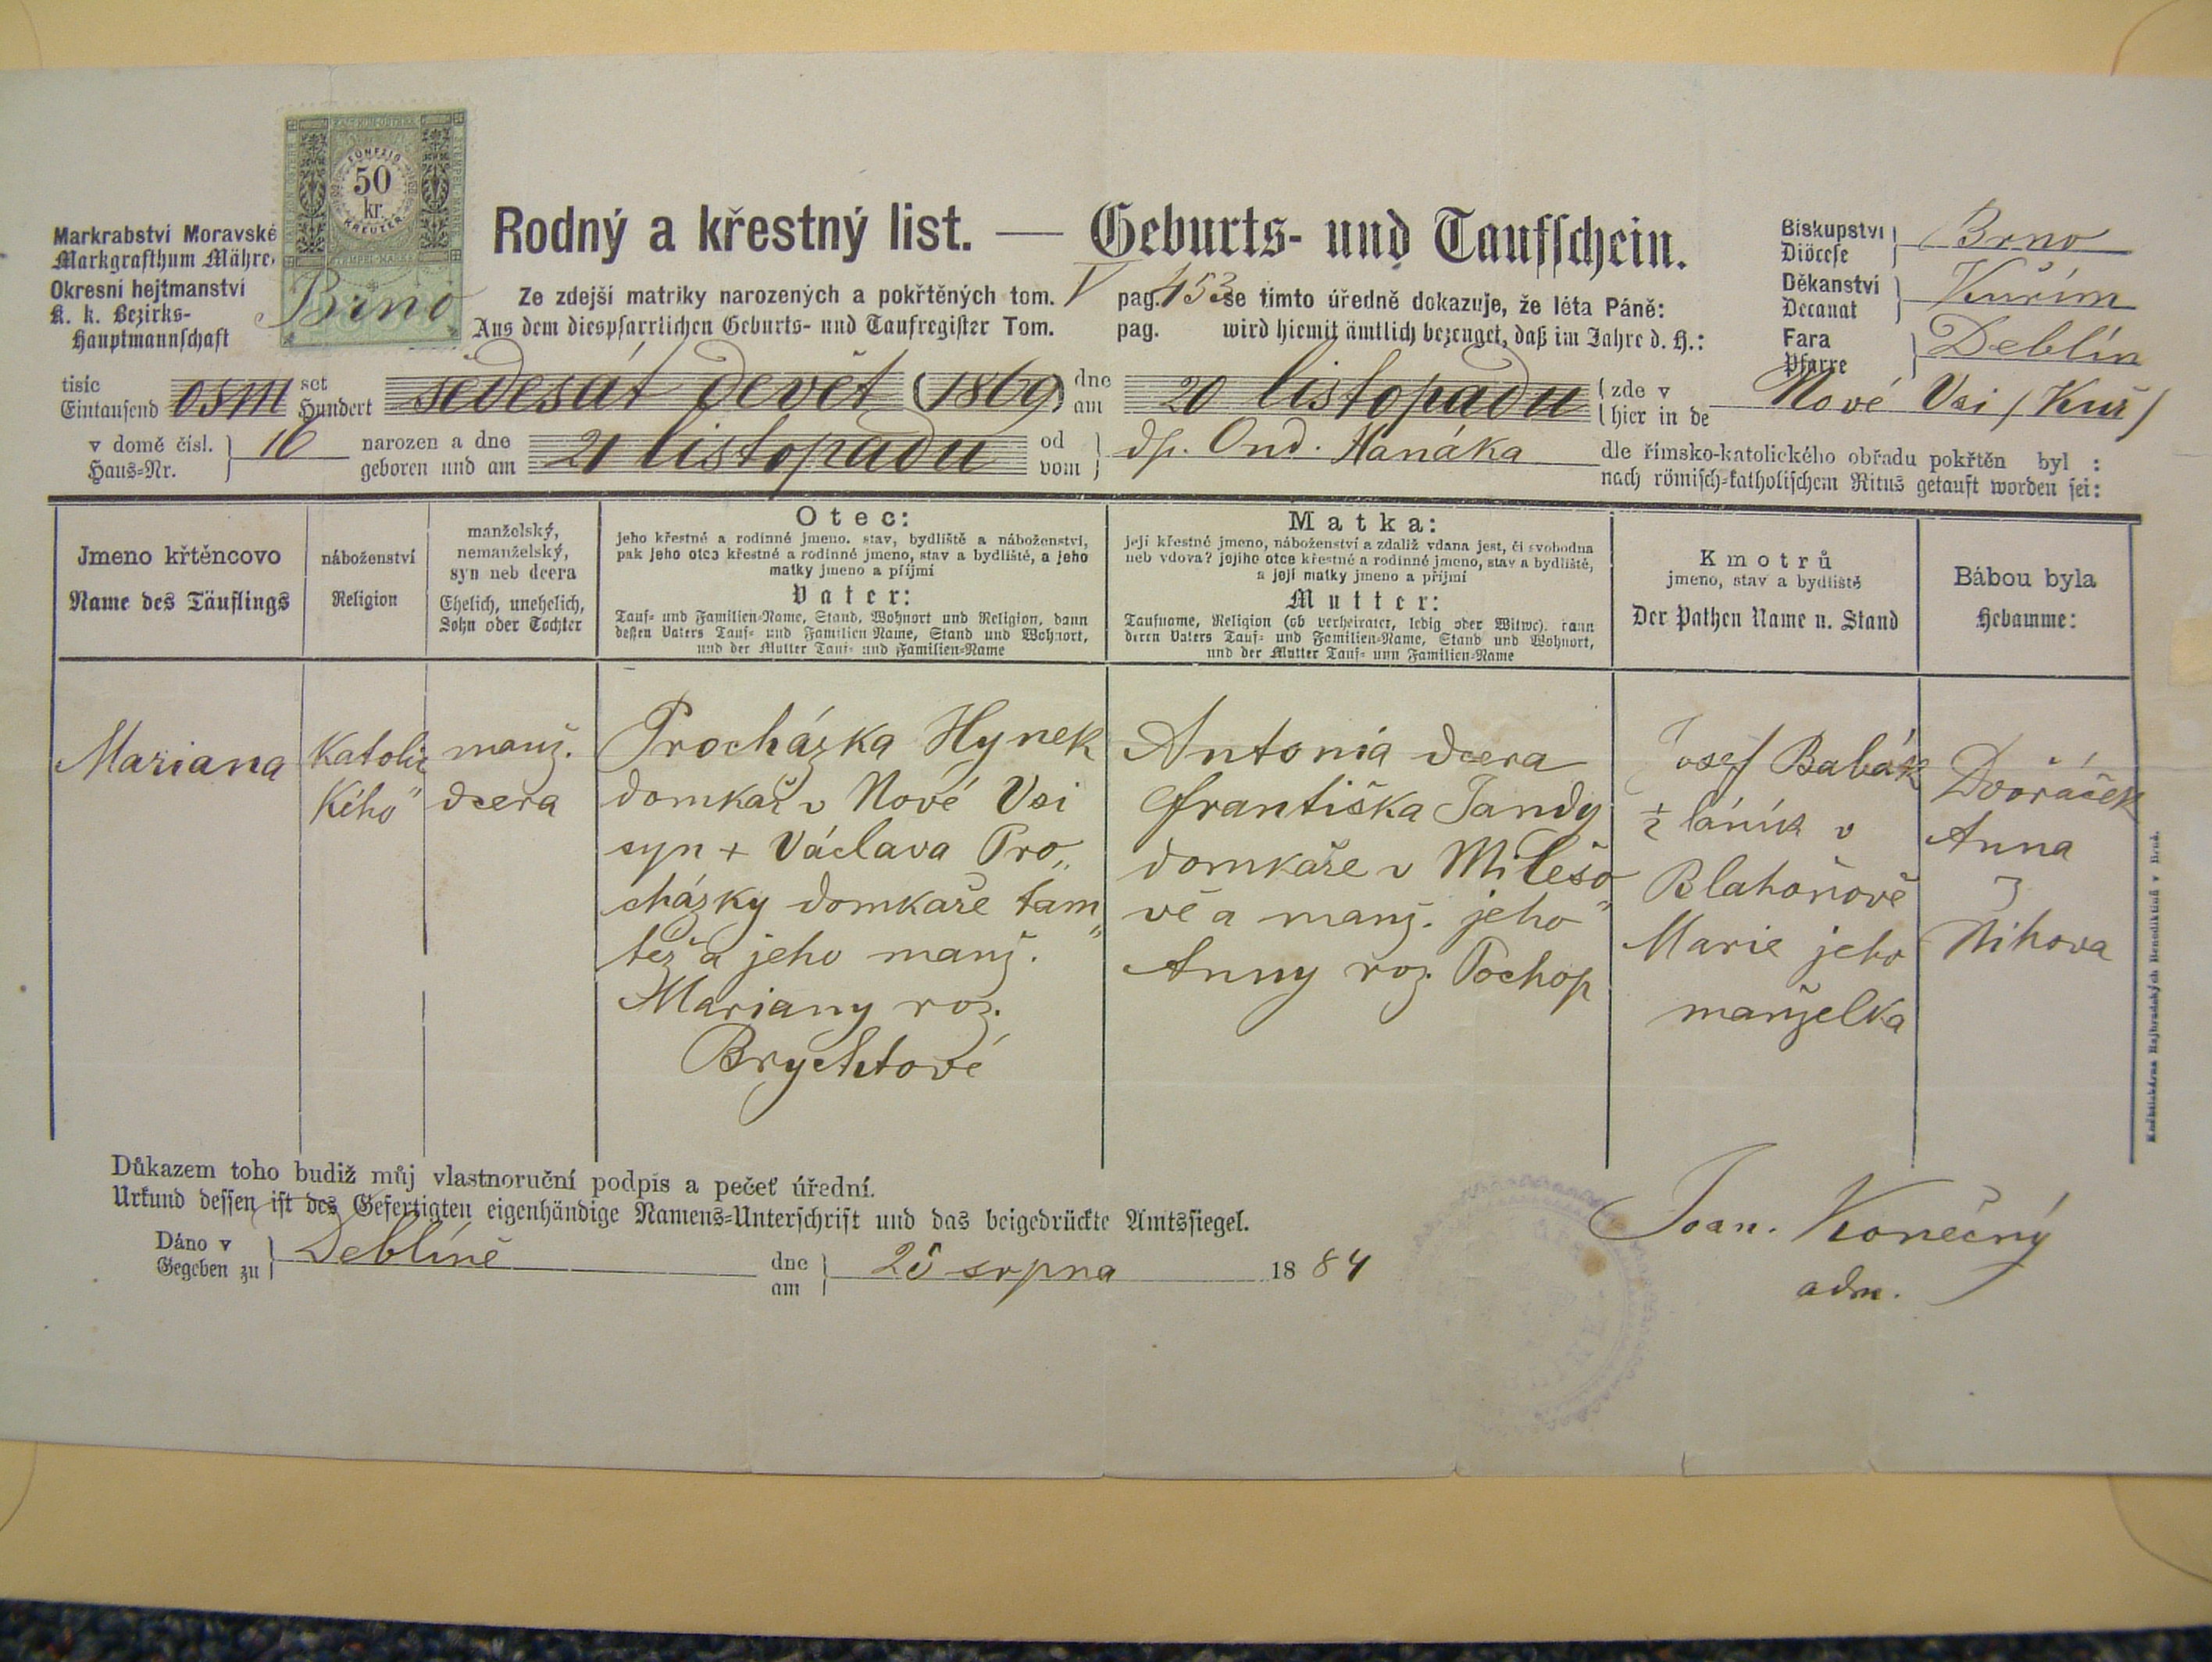 FÜNFZIG
50
kr.
KREUZER
STEMPEL-MARKE
Rodný a křestný list. — Geburts- und Taufschein.
Markrabství Moravské
Markgrafthum Mähre
Okresní hejtmanství
K. k. Bezirks-
Hauptmannschaft
Brno
Biskupství
Diöcese
Brno
Děkanství
Decanat
Kuřím
Fara
Pfarre
Deblín
Ze zdejší matriky narozených a pokřtěných tom. V pag. 453 se tímto úředně dokazuje, že léta Páně:
Aus dem diespfarrlichen Geburts- und Taufregister Tom. pag. wird hiemit ämtlich bezeuget, daß im Jahre d. H.:
tisíc osm set šedesát devět (1869) dne 20 listopadu zde v Nové Vsi (Kuř)
Eintausend Hundert am hier in de
v domě čísl. 16 narozen a dne 21 listopadu od dp. Ond. Hanáka dle římsko-katolického obřadu pokřtěn byl :
Haus-Nr. geboren und am vom nach römisch-katholischem Ritus getauft worden sei:
Jmeno křtěncovo
Name des Täuflings
náboženství
Religion
manželský,
nemanželský,
syn neb dcera
Ehelich, unehelich,
Sohn oder Tochter
Otec:
jeho křestné a rodinné jmeno. stav, bydliště a náboženství,
pak jeho otce křestné a rodinné jmeno, stav a bydliště, a jeho
matky jmeno a příjmí
Vater:
Tauf- und Familien-Name, Stand, Wohnort und Religion, dann
dessen Vaters Tauf- und Familien Name, Stand und Wohnort,
und der Mutter Tauf- und Familien-Name
Matka:
její křestné jmeno, náboženství a zdaliž vdana jest, či svobodna
neb vdova? jejího otce křestné a rodinné jmeno, stav a bydliště,
a její matky jmeno a příjmí
Mutter:
Taufname, Religion (ob verheiratet, ledig oder Witwe). dann
deren Vaters Tauf- und Familien-Name, Stand und Wohnort,
und der Mutter Tauf- unn Familien-Name
Kmotrů
jmeno, stav a bydliště
Der Pathen Name u. Stand
Bábou byla
Hebamme:
Mariana
Katolic
kého
manž.
dcera
Procházka Hynek
domkař v Nové Vsi
syn + Václava Pro„
cházky domkaře tam„
též a jeho manž.
Mariany roz.
Brychtové
Antonia dcera
Františka Jandy
domkaře v Milešo„
vě a manž. jeho
Anny roz. Pochop
Josef Babák
½ láník v
Blahoňově
Marie jeho
manželka
Dvořáček
Anna
z
Níhova
Důkazem toho budiž můj vlastnoruční podpis a pečeť úřední.
Urkund dessen ist des Gefertigten eigenhändige Namens-Unterschrift und das beigedrückte Amtssiegel.
Dáno v
Gegeben zu
Deblíně
dne
am
25 srpna 1884
Joan. Konečný
adm.
Knihtiskárna Rajhradských Benediktinů v Brně.